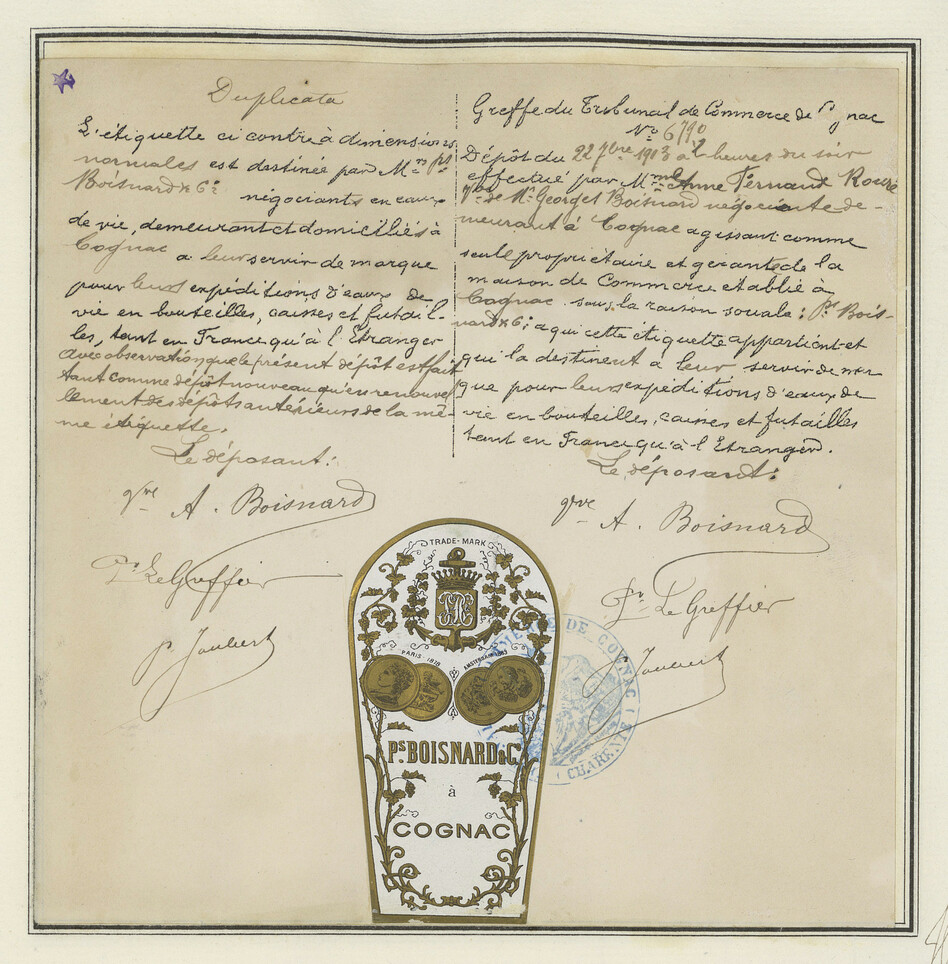 Duplicata
L'étiquette ci contre à dimensions
normales est destinée par M.rs P.s
Boisnard & C.ie
négociants en eaux
de vie, demeurant et domiciliés à
Cognac
a leur servir de marque
pour leurs expéditions d'eaux de
vie en bouteilles, caisses et futail-
les, tant en France qu'à l'Etranger
avec observation que le présent dépôt est fait
tant comme dépôt nouveau qu'en renouvel
lement des dépôts antérieurs de la mê-
me étiquette.
Le déposant:
Vve A. Boisnard
Pr Le Greffier
P. Joubert
Greffe du Tribunal de Commerce de Cognac
No 6790
Dépôt du 22 7bre 1913 à 2 heures du soir
effectué par Mme Anne Fernand Roure
Ve de Mr Georges Boisnard négociante de-
meurant à Cognac agissant comme
seule propriétaire et gérante de la
maison de Commerce établie à
Cognac sous la raison sociale: Ps Bois-
nard & Cie à qui cette étiquette appartient et
qui la destinent à leur servir de mar
que pour leurs expéditions d'eaux de
vie en bouteilles, caisses et futailles
tant en France qu'à l'Etranger.
Le déposant:
Vve A. Boisnard
Pr Le Greffier
Joubert
TRADE-MARK
PARIS-1878
AMSTERDAM 1883
Ps BOISNARD & Co
à
COGNAC
DE COGNAC
CHARENTE